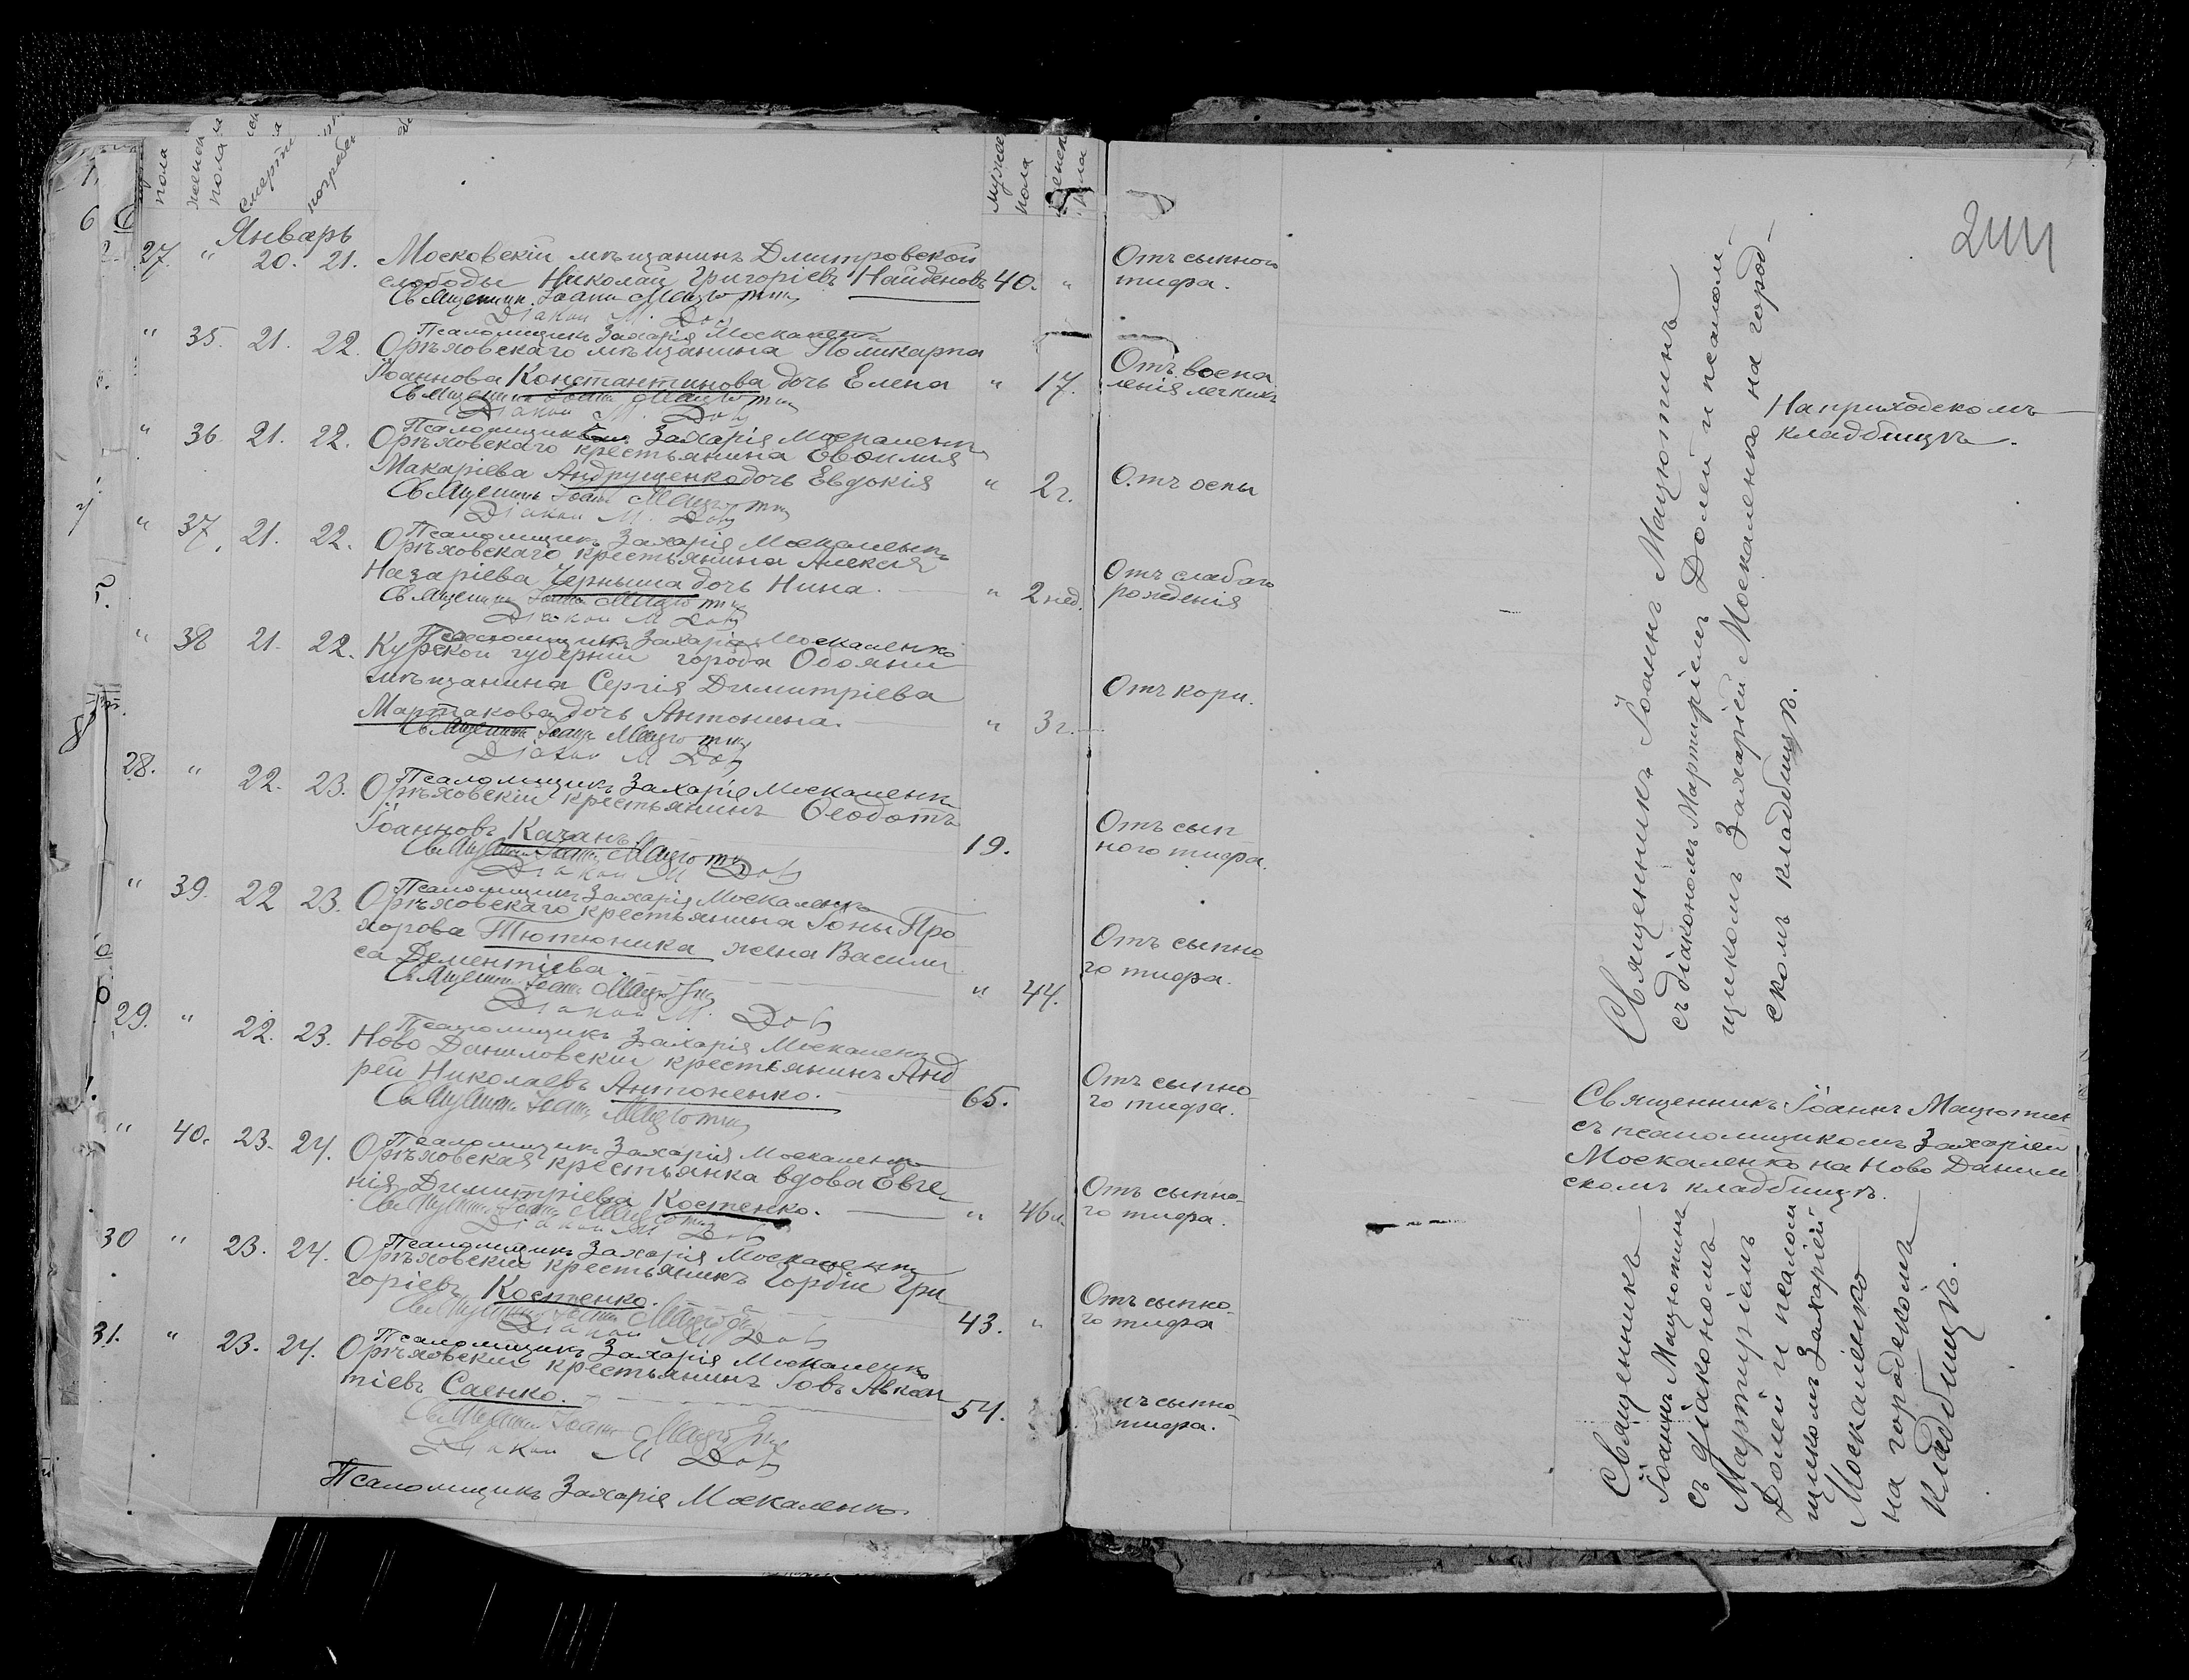 мужес пола
женск пола
смерти
погребен
мужес пола
женск пола
244
Январь
27. " 20. 21. Московскій мѣщанинъ Дмитровской
слободы Николай Григоріевъ Найденовъ 40. "
Отъ сыпного
тифа.
Священник Іоаннъ Мацютин
Діакон М. Дол
Псаломщикъ Захарія Москаленко
" 35. 21. 22. Орѣховскаго мѣщанина Поликарпа
Іоаннова Константинова дочь Елена " 17.
Отъ воспа
ленія легкихъ
Священник Іоаннъ Мацютин
Діакон М. Дол
Псаломщикъ Захарія Москаленко
" 36. 21. 22. Орѣховскаго крестьянина Евѳимія
Макаріева Андрущенко дочь Евдокія " 2 г.
Отъ оспы
Священник Іоаннъ Мацютин
Діакон М. Дол
Псаломщикъ Захарія Москаленко
" 37. 21. 22. Орѣховскаго крестьянина Алексія
Назаріева Черныша дочь Нина. " 2 нед.
Отъ слабаго
рожденія
Священник Іоаннъ Мацютин
Діакон М Дол
Псаломщикъ Захарія Москаленко
" 38 21. 22. Курской губерніи города Обояни
мѣщанина Сергія Димитріева
Мартакова дочь Антонина. " 3 г.
Отъ кори.
Священник Іоаннъ Мацютин
Діакон М Дол
Псаломщикъ Захарія Москаленко
28. " 22. 23. Орѣховскій крестьянинъ Ѳеодотъ
Іоанновъ Качанъ. 19.
Отъ сып
ного тифа.
Священник Іоаннъ Мацютин
Діакон М Дол
Псаломщикъ Захарія Москаленко
" 39. 22 23. Орѣховскаго крестьянина Іоны Про
хорова Тютюника жена Васили
са Дементіева. " 44.
Отъ сыпно
го тифа.
Священник Іоаннъ Мацютин
Діакон М. Дол
Псаломщикъ Захарія Москаленко
29. " 22. 23. Ново Даниловскій крестьянинъ Анд
рей Николаевъ Антоненко. 65.
Отъ сыпно
го тифа.
Священник Іоаннъ Мацютин
Псаломщикъ Захарія Москаленко
" 40. 23. 24. Орѣховская крестьянка вдова Евге
нія Димитріева Костенко. " 46 л.
Отъ сыпно-
го тифа.
Священник Іоаннъ Мацютин
Діакон М Дол
Псаломщикъ Захарія Москаленко
30 " 23. 24. Орѣховскій крестьянинъ Гордій Гри
горіевъ Костенко. 43. "
Отъ сыпно-
го тифа
Священник Іоаннъ Мацютин
Діакон М Дол
Псаломщикъ Захарія Москаленко
31. " 23. 24. Орѣховскій крестьянинъ Іовъ Авксен
тіевъ Саенко. 54.
тъ сыпно-
тифа.
Священник Іоаннъ Мацютин
Діакон М Дол
Псаломщикъ Захарія Москаленко.
Священникъ Іоаннъ Мацютинъ
съ діакономъ Мартиріемъ Долей и псалом-
щикомъ Захаріей Москаленко на город-
скомъ кладбищѣ.
На приходскомъ
кладбищѣ.
Священникъ Іоаннъ Мацютинъ
съ псаломщикомъ Захаріей
Москаленко на Ново Данилов
скомъ кладбищѣ.
Священникъ
Іоаннъ Мацютинъ
съ діакономъ
Мартиріемъ
Долей и псалом
щикомъ Захаріей
Москаленко
на городскомъ
кладбищѣ.